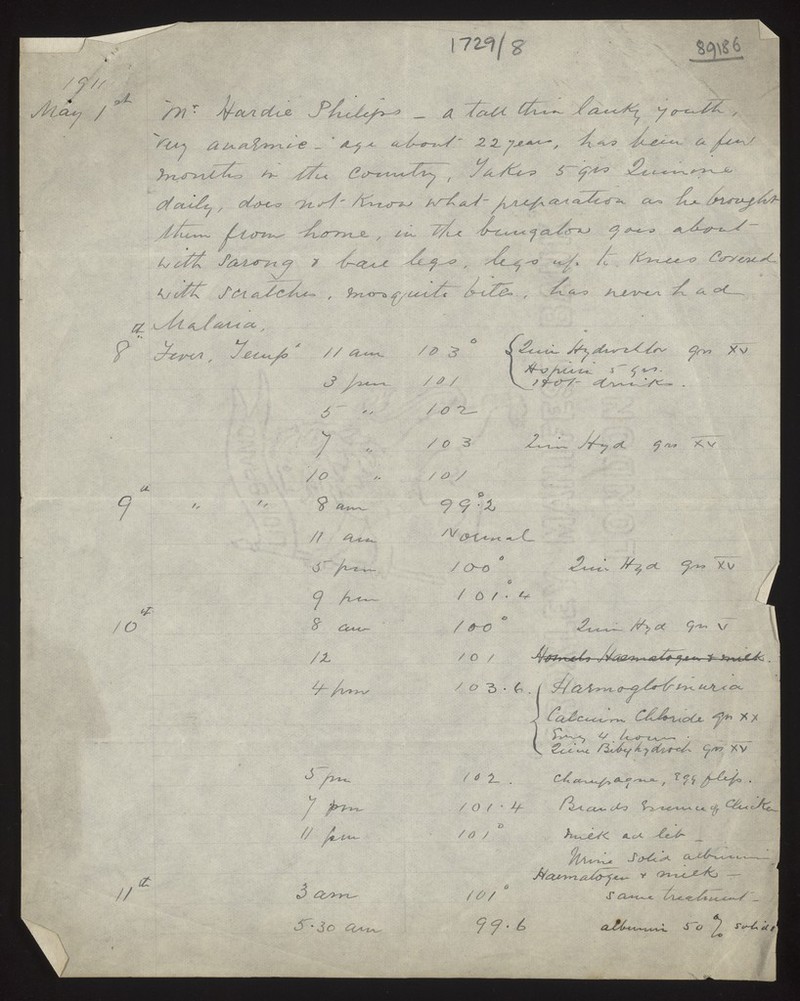 1729/8
89186
1911
May 1st Mr Hardie Philips – a tall thin lanky youth,
very anaemic – age about 22 years, has been a few
months in the country, Takes 5 grs Quinine
daily, does not know what preparation as he brought
them from home, in the bungalow goes about
with Sarong & bare legs, legs up to knees covered
with scratches, mosquito bites, has never had
Malaria.
8th Fever, Temp 11 am 103° Quin Hydrochlor grs XV
Aspirin 5 grs.
3 pm 101 Hot drinks.
5 " 102
7 " 103 Quin Hyd grs XV
10 " 101
9th " " 8 am 99°.2
11 am Normal
5 pm 100° Quin Hyd grs XV
9 pm 101°.4
10th 8 am 100° Quin Hyd grs V
12 101 Homels Haematogen & milk.
4 pm 103.6. Haemoglobinuria
Calcium Chloride grs XX
Every 4 hours.
Quine Bihydroch grs XV
5 pm 102. Champagne, egg flip.
7 pm 101.4 Brands Essence of Chicken
11 pm 101° milk ad lib –
Urine solid albumin
Haematogen & milk –
11th 3 am 101° same treatment –
5.30 am 99.6 albumin 50% solid